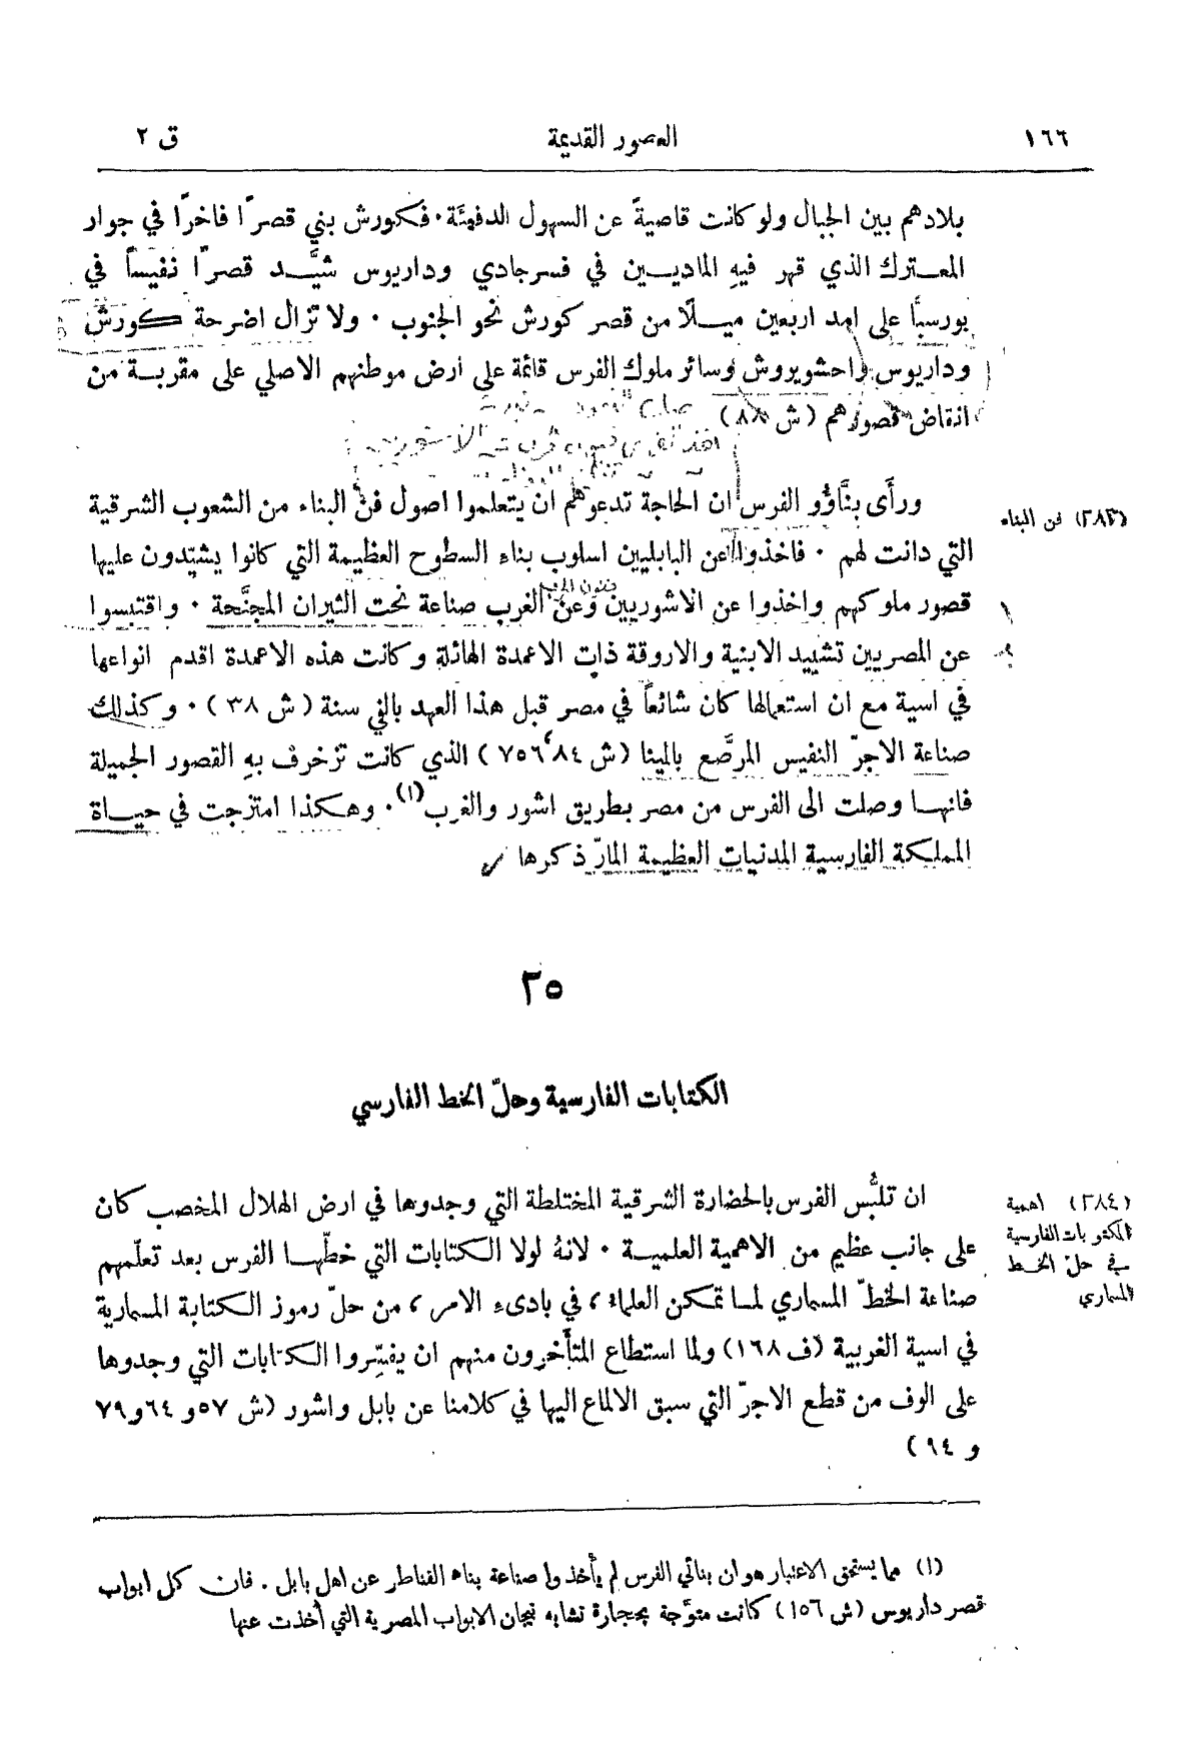 ١٦٦ العصور القديمة ق ٢
بلادهم بين الجبال ولو كانت قاصيةً عن السهول الدفيئة. فكورش بني قصرًا فاخرًا في جوار
المعترك الذي قهر فيهِ الماديين في فسرجادي وداريوس شيَّد قصرًا نفيسًا في
بورسبًّا على امد اربعين ميلًا من قصر كورش نحو الجنوب. ولا تزال اضرحة كورش
وداريوس واحشويروش وسائر ملوك الفرس قائمة على ارض موطنهم الاصلي على مقربة من
انقاض قصورهم (ش ٨٨)
(٢٨٣) فن البناء
ورأَى بنَّاؤُو الفرس ان الحاجة تدعوهم ان يتعلموا اصول فن البناء من الشعوب الشرقية
التي دانت لهم. فاخذوا عن البابليين اسلوب بناء السطوح العظيمة التي كانوا يشيّدون عليها
قصور ملوكهم واخذوا عن الاشوريين وعن الغرب صناعة نحت الثيران المجنَّحة. واقتبسوا
عن المصريين تشييد الابنية والاروقة ذات الاعمدة الهائلة وكانت هذه الاعمدة اقدم انواعها
في اسية مع ان استعمالها كان شائعاً في مصر قبل هذا العهد بالفي سنة (ش ٣٨). وكذلك
صناعة الاجرّ النفيس المرصَّع بالمينا (ش ٨٤، ٧٥٦) الذي كانت تزخرف بهِ القصور الجميلة
فانها وصلت الى الفرس من مصر بطريق اشور والغرب(١). وهكذا امتزجت في حياة
المملكة الفارسية المدنيات العظيمة المارّ ذكرها
٢٥
الكتابات الفارسية وحلّ الخط الفارسي
(٢٨٤) اهمية
المكتوبات الفارسية
في حلّ الخط
المسماري
ان تلبُّس الفرس بالحضارة الشرقية المختلطة التي وجدوها في ارض الهلال المخصب كان
على جانب عظيم من الاهمية العلمية. لانهُ لولا الكتابات التي خطّها الفرس بعد تعلّمهم
صناعة الخطّ المسماري لما تمكن العلماء، في بادىءِ الامر، من حلّ رموز الكتابة المسمارية
في اسية الغربية (ف ١٦٨) ولما استطاع المتأَخرون منهم ان يفسِّروا الكتابات التي وجدوها
على الوف من قطع الاجرّ التي سبق الالماع اليها في كلامنا عن بابل واشور (ش ٥٧ و ٦٤ و ٧٩
و ٩٤)
(١) مما يستحق الاعتبار هو ان بنائي الفرس لم يأخذوا صناعة بناء القناطر عن اهل بابل. فان كل ابواب
قصر داريوس (ش ١٥٦) كانت متوَّجة بحجارة تشابه تيجان الابواب المصرية التي أُخذت عنها